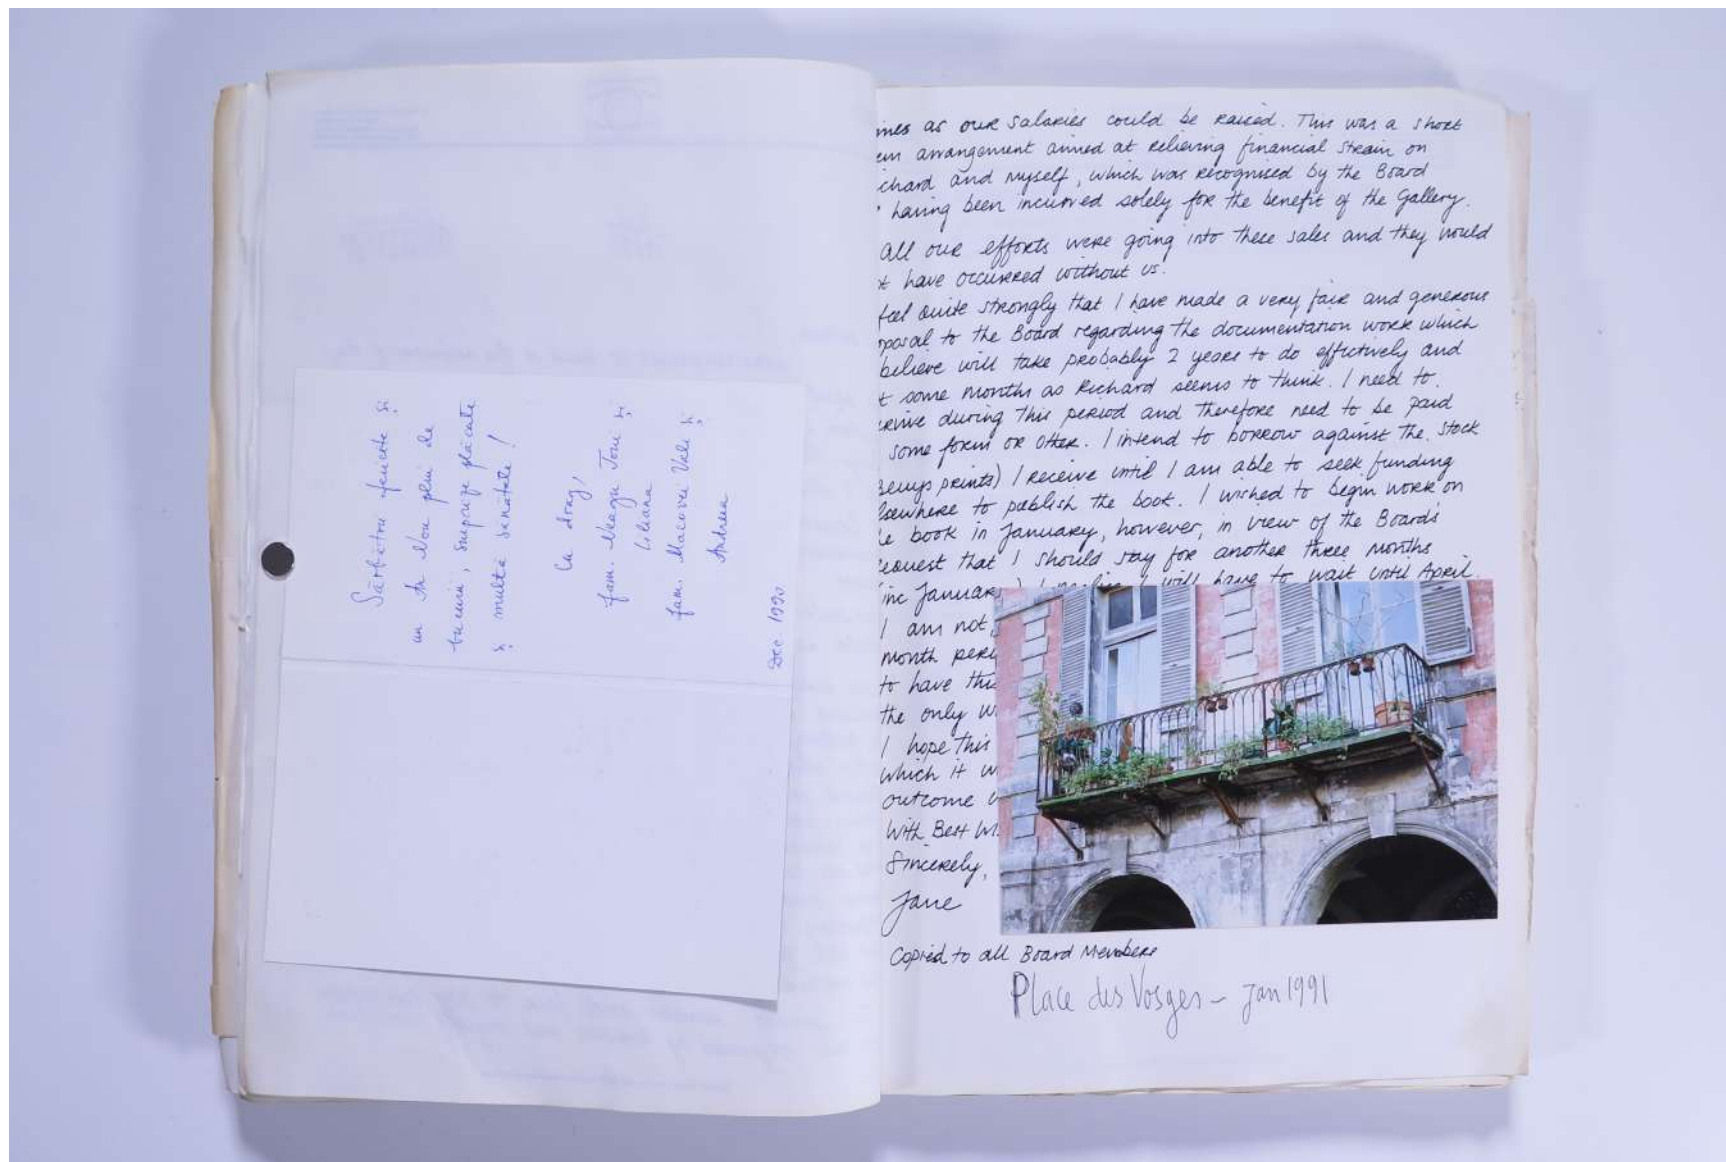 Sărbători fericite și
un An Nou plin de
bucurii, surprize plăcute
și multă sănătate!
Cu drag,
fam. Neagu Toni și
Liliana
fam. Macovei Vali și
Andreea
Dec. 1990
as our salaries could be raised. This was a short
arrangement aimed at relieving financial strain on
chard and myself, which was recognised by the Board
having been incurred solely for the benefit of the Gallery.
All our efforts were going into these sales and they would
have occurred without us.
feel quite strongly that I have made a very fair and generous
posal to the Board regarding the documentation work which
believe will take probably 2 years to do effectively and
some months as Richard seems to think. I need to
during this period and therefore need to be paid
some form or other. I intend to borrow against the stock
prints) I receive until I am able to seek funding
sewhere to publish the book. I wished to begin work on
book in January, however, in view of the Board's
equest that I should stay for another three months
inc January I will have to wait until April.
I am not
month peri
to have this
the only w
I hope this
which it w
outcome
With Best Wi
Sincerely,
Jane
Copied to all Board Members
Place des Vosges – Jan 1991